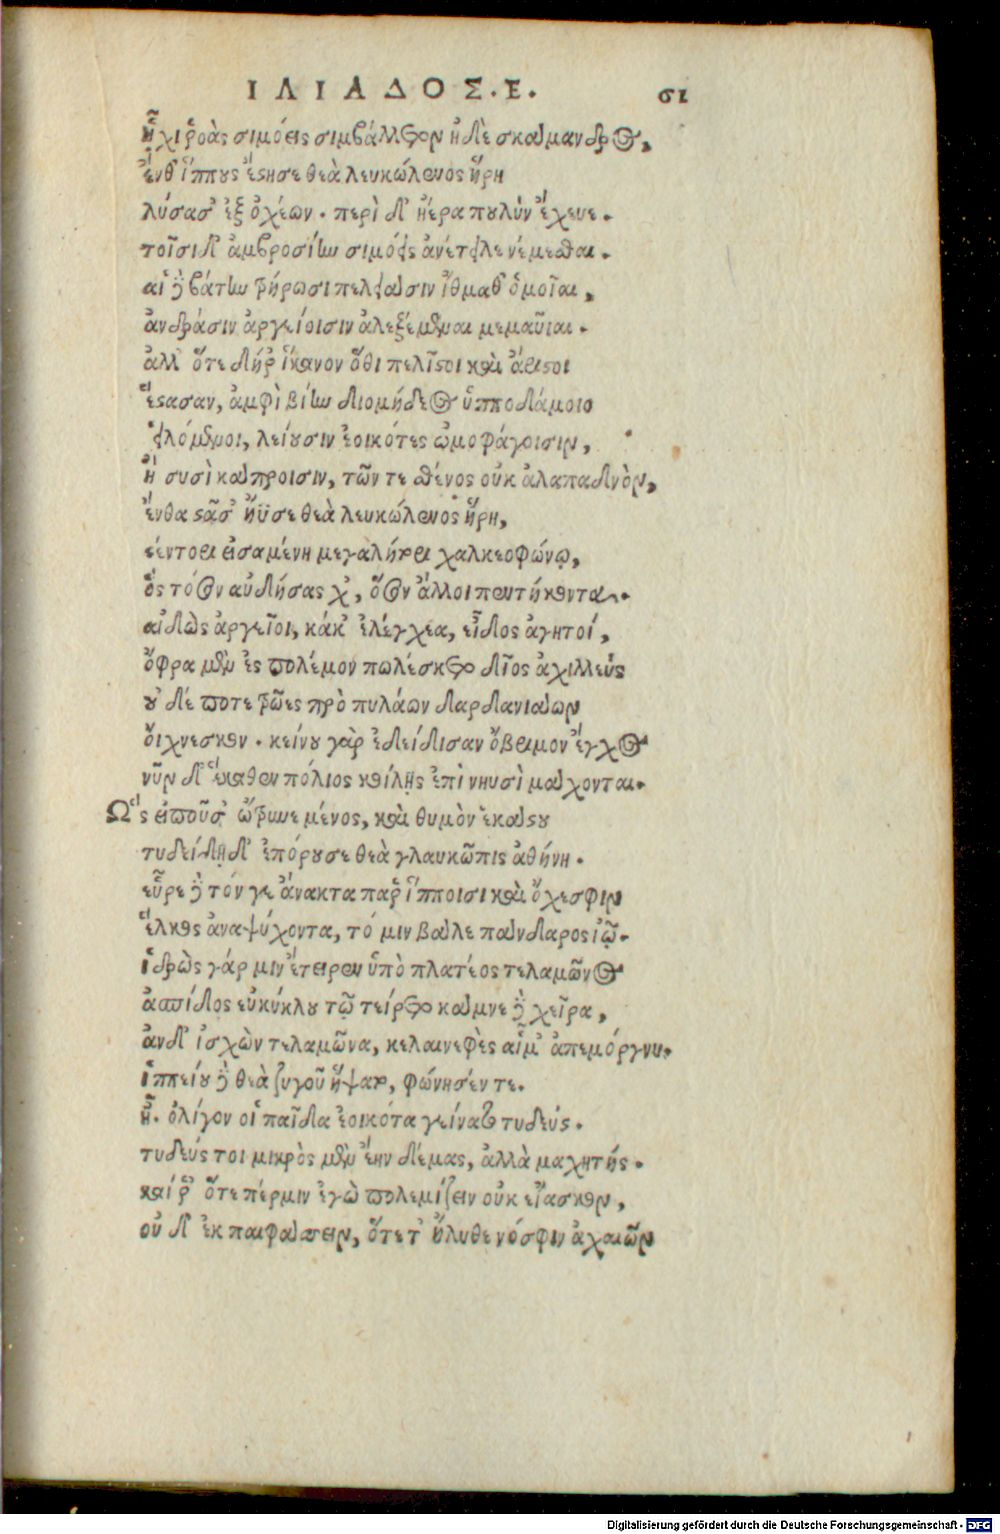 ΙΛΙΑΔΟΣ.Ε. σι
ἧχι ῥοὰς σιμόεις συμβάλλετον ἠδὲ σκάμανδρος,
ἔνθ' ἵππους ἔστησε θεὰ λευκώλενος ἥρη
λύσασ' ἐξ ὀχέων. περὶ δ' ἠέρα πουλὺν ἔχευε.
τοῖσι δ' ἀμβροσίην σιμόεις ἀνέτειλε νέμεσθαι.
αἱ δὲ βάτην τρήρωσι πελειάσιν ἴθμαθ' ὁμοῖαι,
ἀνδράσιν ἀργείοισιν ἀλεξέμεναι μεμαυῖαι.
ἀλλ' ὅτε δήρ' ἵκανον ὅθι πλεῖστοι καὶ ἄριστοι
ἕστασαν, ἀμφὶ βίην διομήδεος ἱπποδάμοιο
εἰλόμενοι, λείουσιν ἐοικότες ὠμοφάγοισιν,
ἢ συσὶ κάπροισιν, τῶν τε σθένος οὐκ ἀλαπαδνὸν,
ἔνθα στᾶσ' ἤϋσε θεὰ λευκώλενος ἥρη,
στέντορι εἰσαμένη μεγαλήτορι χαλκεοφώνῳ,
ὃς τόσον αὐδήσασχ', ὅσον ἄλλοι πεντήκοντα.
αἰδὼς ἀργεῖοι, κάκ' ἐλέγχεα, εἶδος ἀγητοί,
ὄφρα μὲν ἐς πολέμον πωλέσκετο δῖος ἀχιλλεὺς
οὐδέ ποτε τρῶες πρὸ πυλάων δαρδανιάων
οἴχνεσκον. κείνου γὰρ ἐδείδισαν ὄβριμον ἔγχος
νῦν δ' ἕκαθεν πόλιος κοίλῃς ἐπὶ νηυσὶ μάχονται.
Ὣς εἰποῦσ' ὤτρυνε μένος, καὶ θυμὸν ἑκάστου
τυδείδῃ δ' ἐπόρουσε θεὰ γλαυκῶπις ἀθήνη.
εὗρε δὲ τόν γε ἄνακτα παρ' ἵπποισι καὶ ὄχεσφιν
ἕλκος ἀναψύχοντα, τό μιν βάλε πάνδαρος ἰῷ.
ἱδρὼς γάρ μιν ἔτειρεν ὑπὸ πλατέος τελαμῶνος
ἀσπίδος εὐκύκλου τῷ τείρετο κάμνε δὲ χεῖρα,
ἂν δ' ἰσχὼν τελαμῶνα, κελαινεφὲς αἷμ' ἀπεμόργνυ.
ἱππείου δὲ θεὰ ζυγοῦ ἥψατο, φώνησέν τε.
ἦ. ὀλίγον οἷ παῖδα ἐοικότα γείνατο τυδεύς.
τυδεύς τοι μικρὸς μὲν ἔην δέμας, ἀλλὰ μαχητής.
καί ῥ' ὅτε πέρ μιν ἐγὼ πολεμίζειν οὐκ εἴασκον,
οὐδ' ἐκπαιφάσσειν, ὅτε τ' ἤλυθε νόσφιν ἀχαιῶν
Digitalisierung gefördert durch die Deutsche Forschungsgemeinschaft - DFG